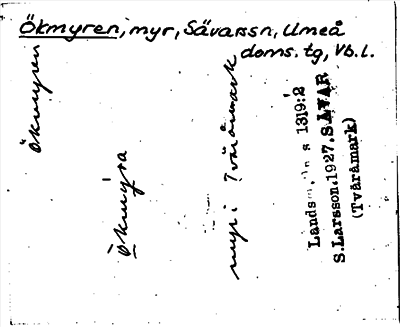 Ökmyren, myr, Sävarssn, Umeå
doms. tg, Vb. l.
Ökmyren
Ökmyra
myr i Tväråmark
1319:2
S.Larsson.1927.SÄVAR
(Tväråmark)